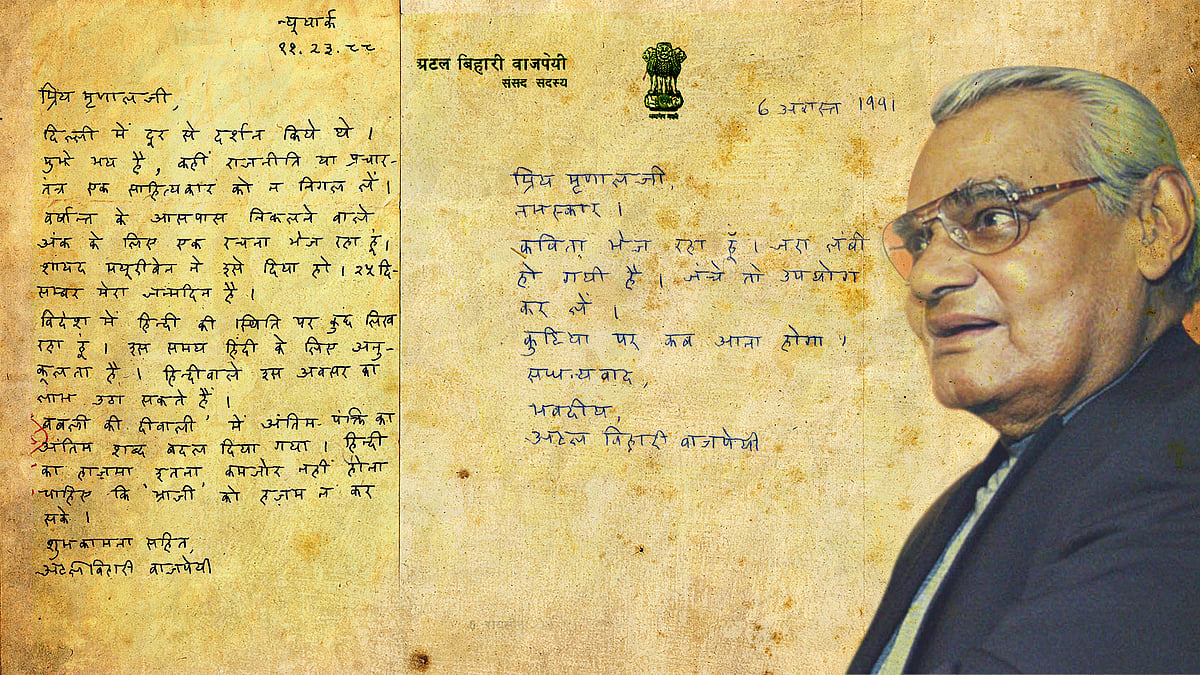 न्यूयार्क
११.२३.८८
प्रिय मृणालजी,
दिल्ली में दूर से दर्शन किये थे ।
मुझे भय है, कहीं राजनीति या प्रचार-
तंत्र एक साहित्यकार को न निगल लें ।
वर्षान्त के आसपास निकलने वाले
अंक के लिए एक रचना भेज रहा हूं ।
शायद मयूरीबेन ने इसे दिया हो । २५ दि-
सम्बर मेरा जन्मदिन है ।
विदेश में हिन्दी की स्थिति पर कुछ लिख
रहा हूं । इस समय हिंदी के लिए अनु-
कूलता है । हिन्दीवाले इस अवसर का
लाभ उठा सकते हैं ।
की दीवाली' में अंतिम पंक्ति का
अंतिम शब्द बदल दिया गया । हिन्दी
का हाज़मा इतना कमजोर नहीं होना
चाहिए कि 'भाजी' को हज़म न कर
सके ।
शुभकामना सहित,
अटल बिहारी वाजपेयी
अटल बिहारी वाजपेयी
संसद सदस्य
6 अगस्त 1991
प्रिय मृणालजी,
नमस्कार ।
कविता भेज रहा हूँ । जरा लंबी
हो गयी है । जंचे तो उपयोग
कर लें ।
कुटिया पर कब आना होगा ?
सधन्यवाद,
भवदीय,
अटल बिहारी वाजपेयी